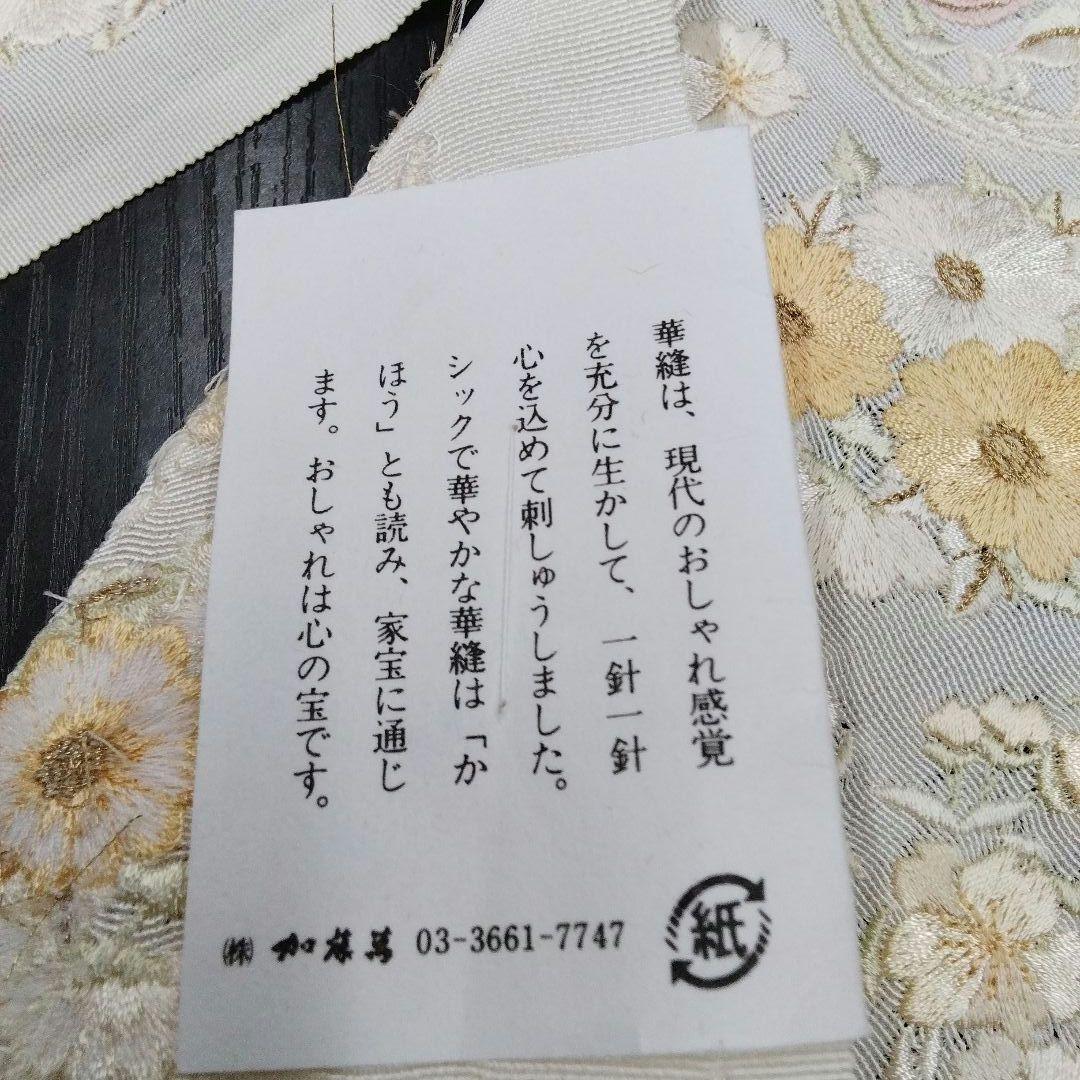 華縫は、現代のおしゃれ感覚
を充分に生かして、一針一針
心を込めて刺しゅうしました。
シックで華やかな華縫は「か
ほう」とも読み、家宝に通じ
ます。おしゃれは心の宝です。
㈱ 加藤萬 03-3661-7747
紙